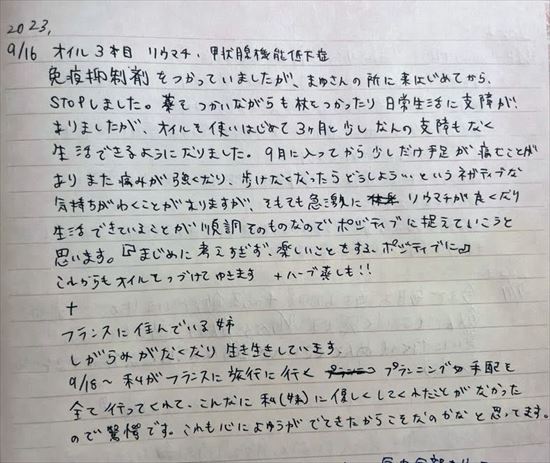 2023,
9/16 オイル3本目 リウマチ、甲状腺機能低下症
免疫抑制剤をつかっていましたが、まゆさんの所に来はじめてから、
STOPしました。薬をつかいながらも杖をつかったり日常生活に支障が
ありましたが、オイルを使いはじめて3ヶ月と少しなんの支障もなく
生活できるようになりました。9月に入ってから少しだけ手足が痛むことが
あり また痛みが強くなり、歩けなくなったらどうしよう…というネガティブな
気持ちがわくことがありますが、そもそも急激に リウマチが良くなり
生活できていることが順調そのものなのでポジティブに捉えていこうと
思います。『まじめに考えすぎず、楽しいことをする、ポジティブに』
これからもオイルをつづけてゆきます +ハーブ蒸しも!!
+
フランスに住んでいる姉
しがらみがなくなり 生き生きしています。
9/18〜 私がフランスに旅行に行く プランニングや手配を
全て行ってくれて、こんなに私(妹)に優しくしてくれたことがなかった
ので驚愕です。これも心によゆうがでてきたからこそなのかなと思ってます。